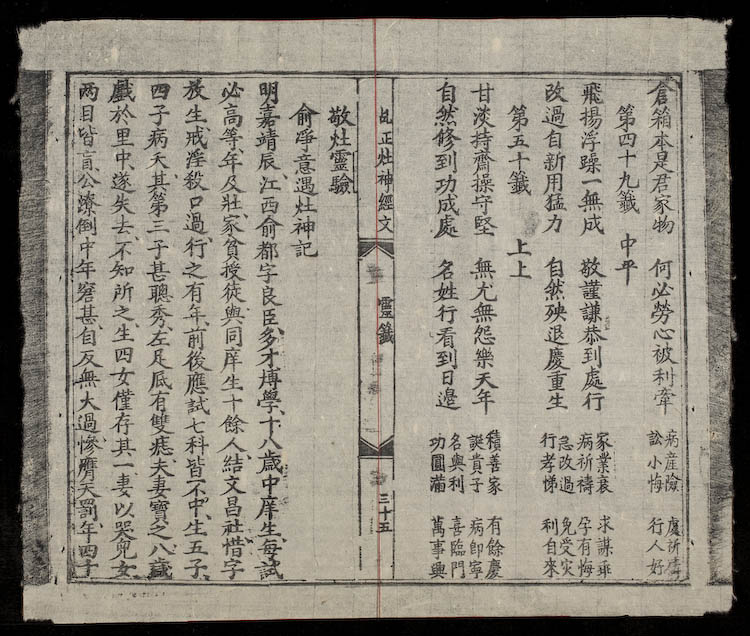 倉箱本是君家物 何必勞心被利牽 病産險 訟小悔 處祈禱 行人好
第四十九籤 中平
飛揚浮躁一無成 敬謹謙恭到處行 家業衰 病祈禱 求謀乖 孕有悔
改過自新用猛力 自然殃退慶重生 急改過 行孝悌 免受灾 利自來
第五十籤 上上
甘淡持齋操守堅 無尤無怨樂天年 積善家 誕貴子 有餘慶 病即寧
自然修到功成處 名姓行看到日邉 名與利 功圓滿 喜臨門 萬事興
乩正灶神經文 靈籤 三十五
敬灶靈驗
俞凈意遇灶神記
明嘉靖辰江西俞都字良臣多才博學十八歲中庠生每試
必高等年及壯家貧授徒與同庠生十餘人結文昌社惜字
放生戒淫殺口過行之有年前後應試七科皆不中生五子
四子病夭其第三子甚聰秀左足底有雙痣夫妻寶之八歲
戲於里中遂失去不知所之生四女僅存其一妻以哭兒女
两目皆盲公潦倒中年窘甚自反無大過慘膺天罰年四十